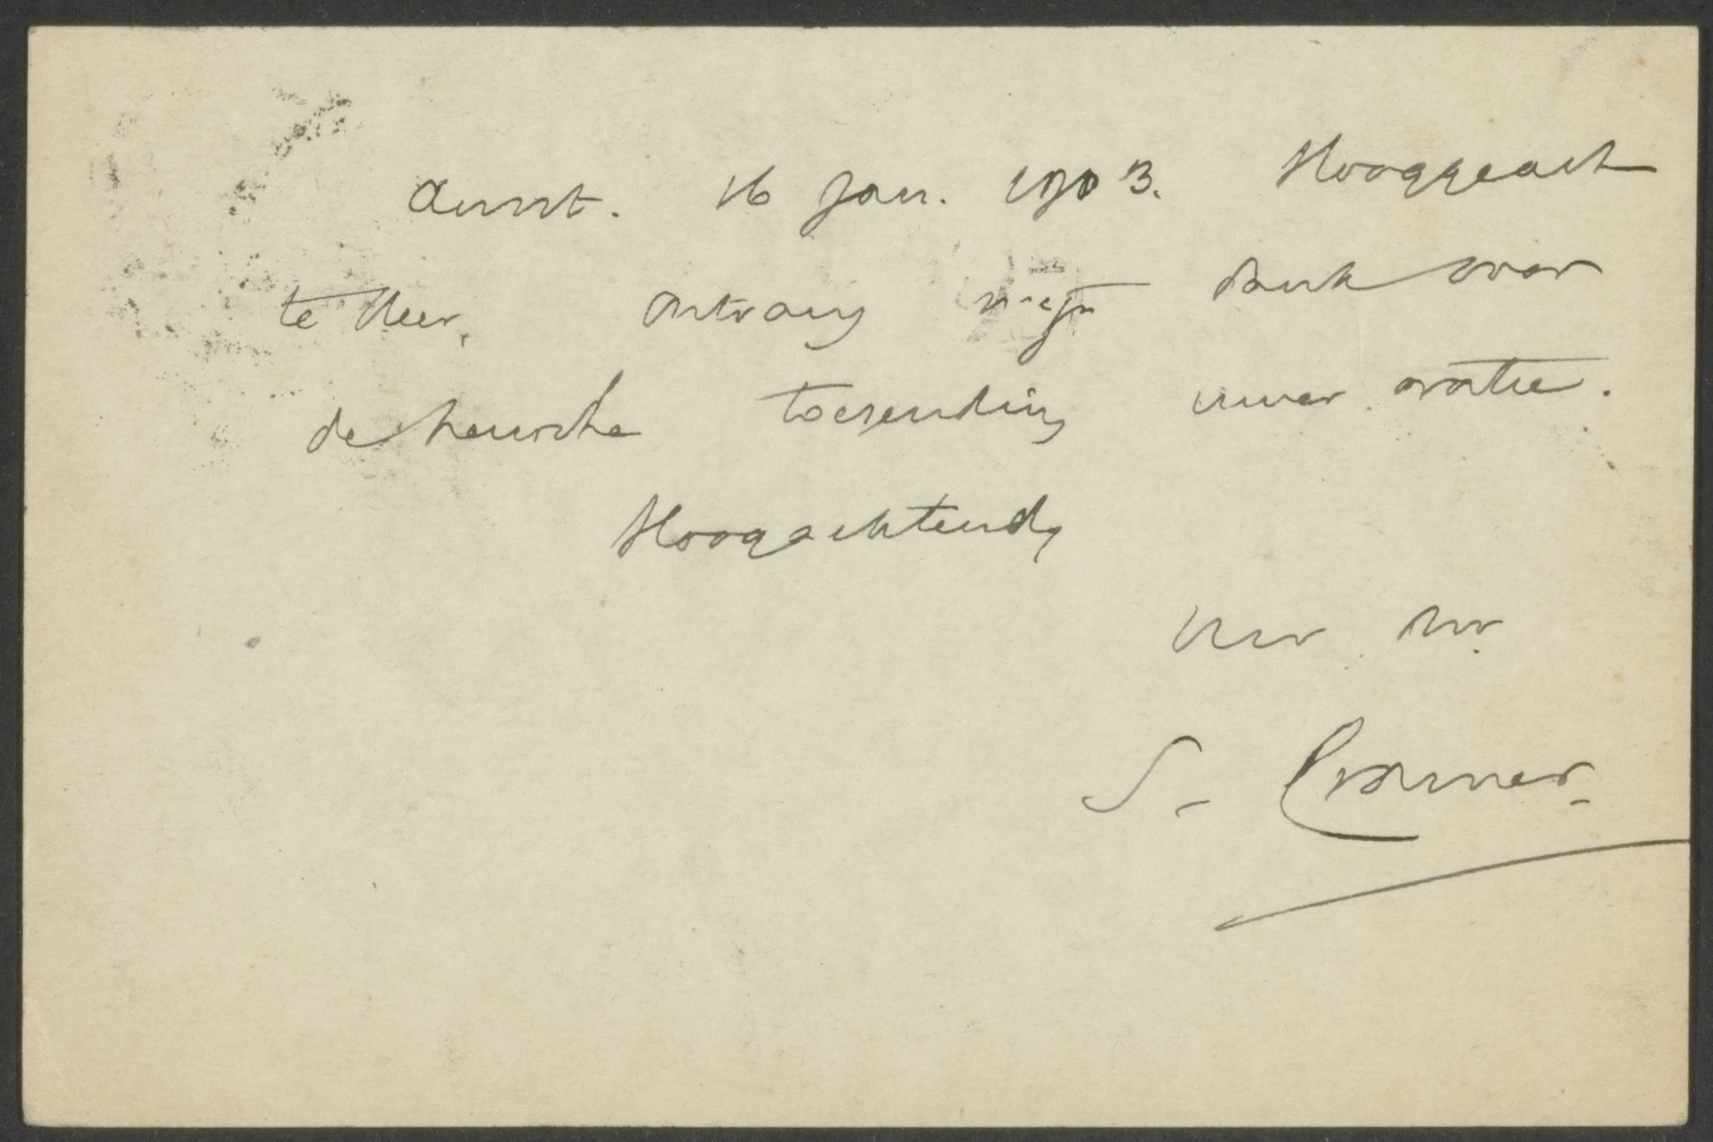 Amst. 16 Jan. 1903. Hooggeach
te Heer, ontvang mijn dank voor
de heusche toezending uwer oratie.
Hoogachtend,
Uw dw.
S. Cramer.